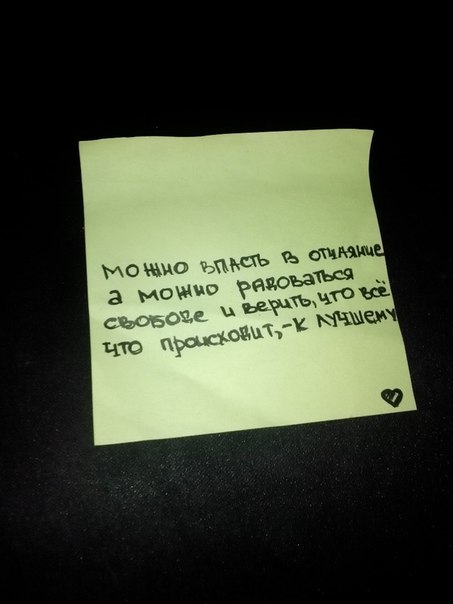 можно впасть в отчаяние
а можно радоваться
свободе и верить, что всё
что происходит,-к лучшему